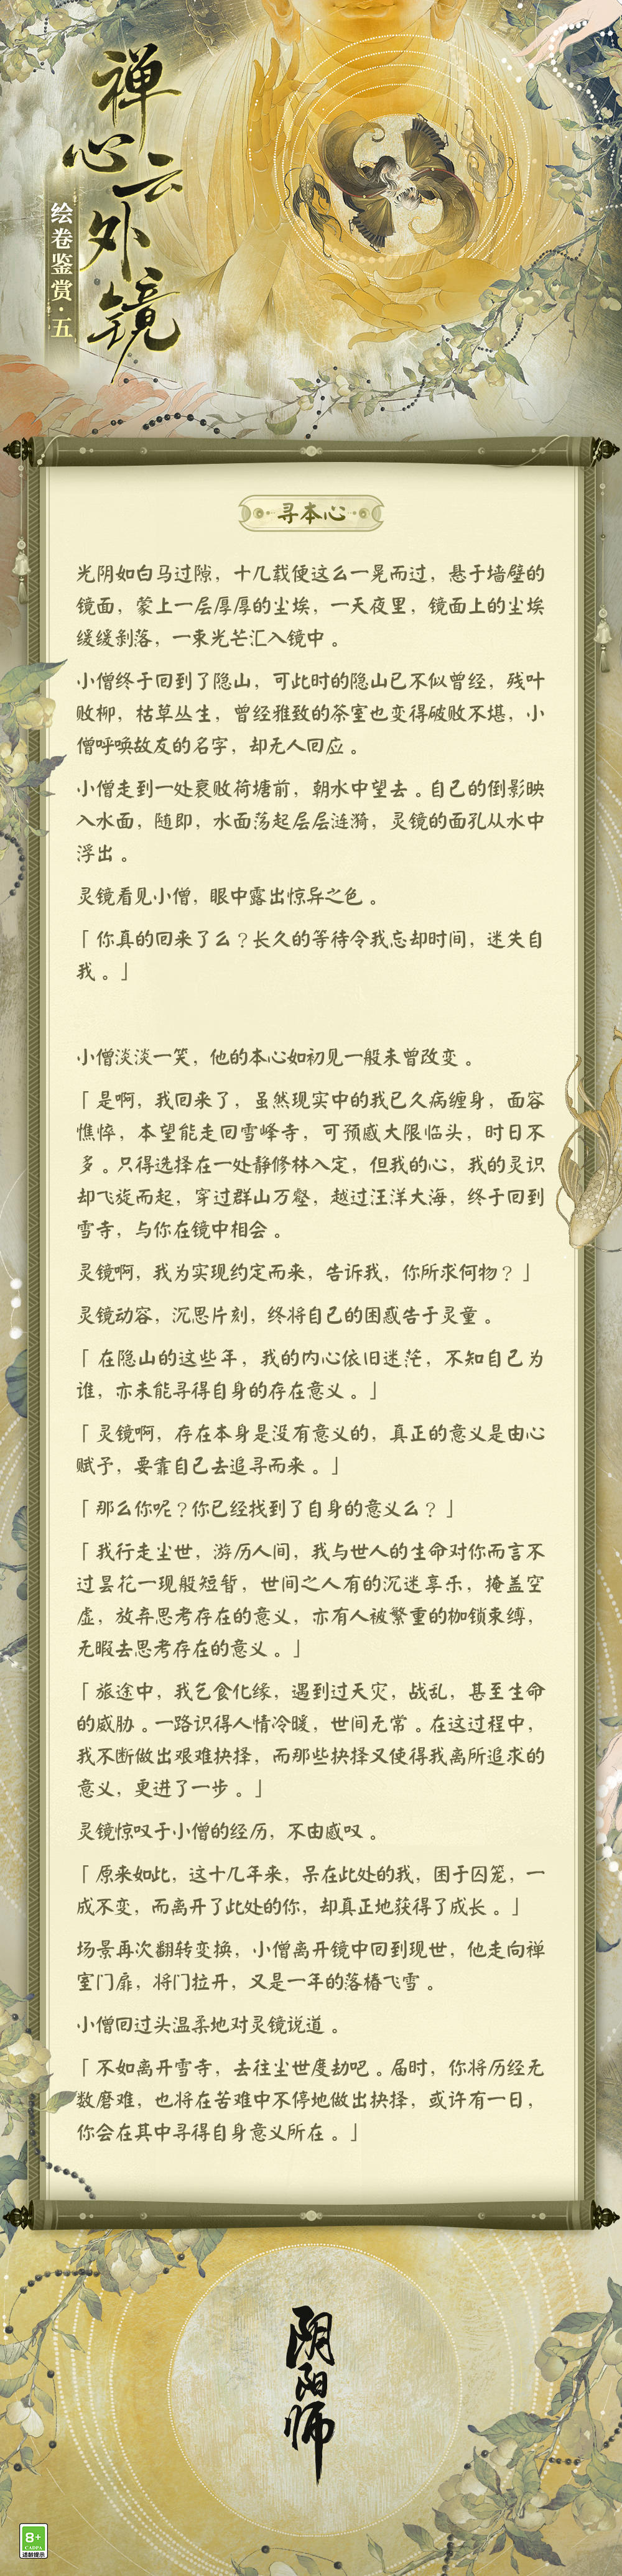 禅心云外镜
绘卷鉴赏·五
寻本心
光阴如白马过隙，十几载便这么一晃而过，悬于墙壁的
镜面，蒙上一层厚厚的尘埃，一天夜里，镜面上的尘埃
缓缓剥落，一束光芒汇入镜中。
小僧终于回到了隐山，可此时的隐山已不似曾经，残叶
败柳，枯草丛生，曾经雅致的茶室也变得破败不堪，小
僧呼唤故友的名字，却无人回应。
小僧走到一处衰败荷塘前，朝水中望去。自己的倒影映
入水面，随即，水面荡起层层涟漪，灵镜的面孔从水中
浮出。
灵镜看见小僧，眼中露出惊异之色。
「你真的回来了么？长久的等待令我忘却时间，迷失自
我。」
小僧淡淡一笑，他的本心如初见一般未曾改变。
「是啊，我回来了，虽然现实中的我已久病缠身，面容
憔悴，本望能走回雪峰寺，可预感大限临头，时日不
多。只得选择在一处静修林入定，但我的心，我的灵识
却飞旋而起，穿过群山万壑，越过汪洋大海，终于回到
雪寺，与你在镜中相会。
灵镜啊，我为实现约定而来，告诉我，你所求何物？」
灵镜动容，沉思片刻，终将自己的困惑告于灵童。
「在隐山的这些年，我的内心依旧迷茫，不知自己为
谁，亦未能寻得自身的存在意义。」
「灵镜啊，存在本身是没有意义的，真正的意义是由心
赋予，要靠自己去追寻而来。」
「那么你呢？你已经找到了自身的意义么？」
「我行走尘世，游历人间，我与世人的生命对你而言不
过昙花一现般短暂，世间之人有的沉迷享乐，掩盖空
虚，放弃思考存在的意义，亦有人被繁重的枷锁束缚，
无暇去思考存在的意义。」
「旅途中，我乞食化缘，遇到过天灾，战乱，甚至生命
的威胁。一路识得人情冷暖，世间无常。在这过程中，
我不断做出艰难抉择，而那些抉择又使得我离所追求的
意义，更进了一步。」
灵镜惊叹于小僧的经历，不由感叹。
「原来如此，这十几年来，呆在此处的我，困于囚笼，一
成不变，而离开了此处的你，却真正地获得了成长。」
场景再次翻转变换，小僧离开镜中回到现世，他走向禅
室门扉，将门拉开，又是一年的落椿飞雪。
小僧回过头温柔地对灵镜说道。
「不如离开雪寺，去往尘世度劫吧。届时，你将历经无
数磨难，也将在苦难中不停地做出抉择，或许有一日，
你会在其中寻得自身意义所在。」
阴阳师
8+
CADPA
适龄提示